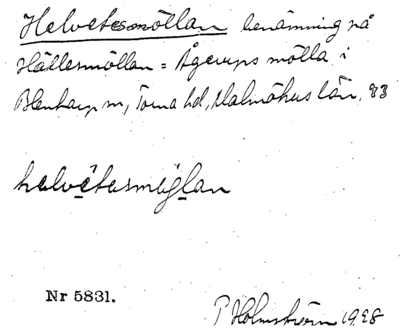 Helvetesmöllan benämning på
Hällesmöllan = Ågerups mölla i
Blentarp sn, Torna hd, Malmöhus län. 93
helvetesmöllan
Nr 5831.
P Holmström 1928